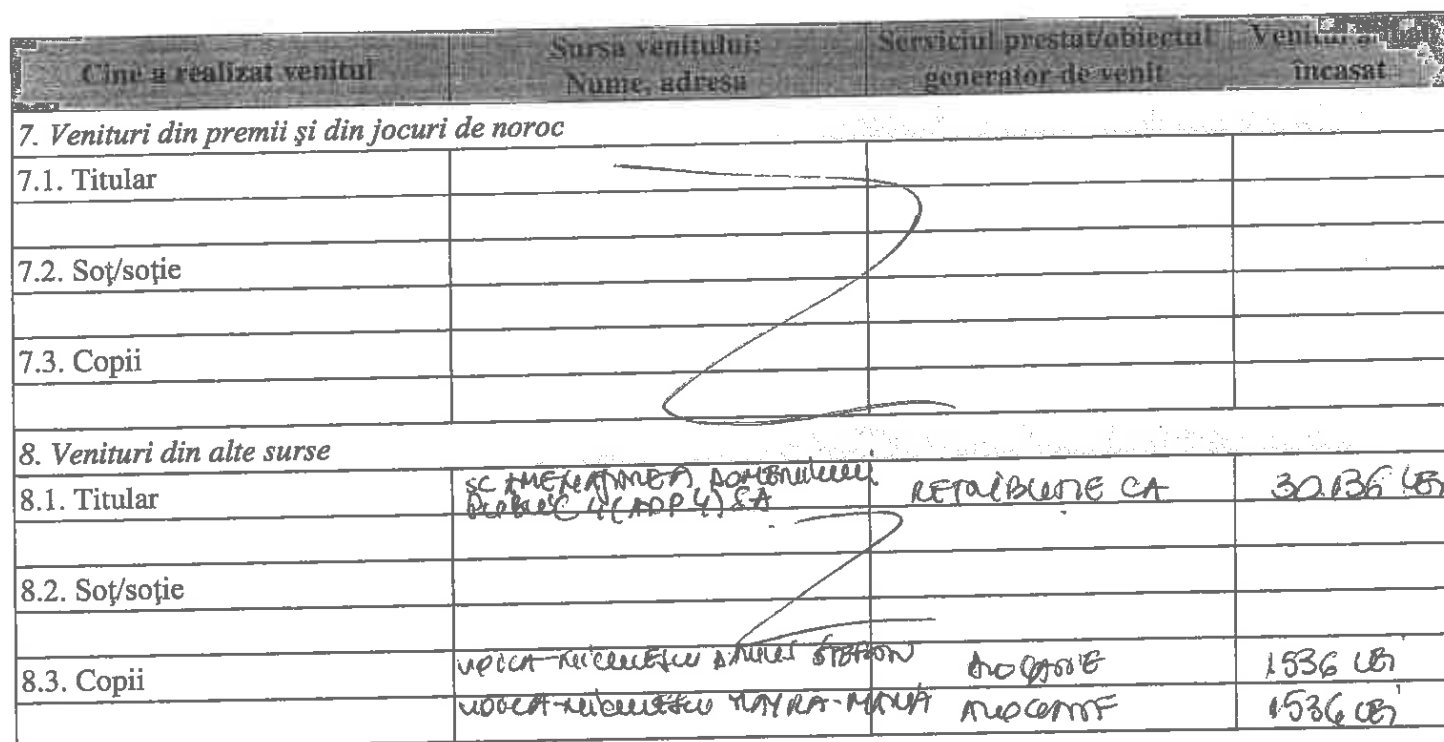 Cine a realizat venitul
Sursa venitului:
Nume, adresa
Serviciul prestat/obiectul
generator de venit
Venitul anual
încasat
7. Venituri din premii şi din jocuri de noroc
7.1. Titular
7.2. Soţ/soţie
7.3. Copii
8. Venituri din alte surse
8.1. Titular
SC AMENAJAREA DOMENIULUI
PUBLIC 4 (ADP 4) SA
CA
30.136 LEI
8.2. Soţ/soţie
8.3. Copii
ŞTEFAN
ALOCAŢIE
1536 LEI
MAYRA-MARIA
ALOCAŢIE
1536 LEI